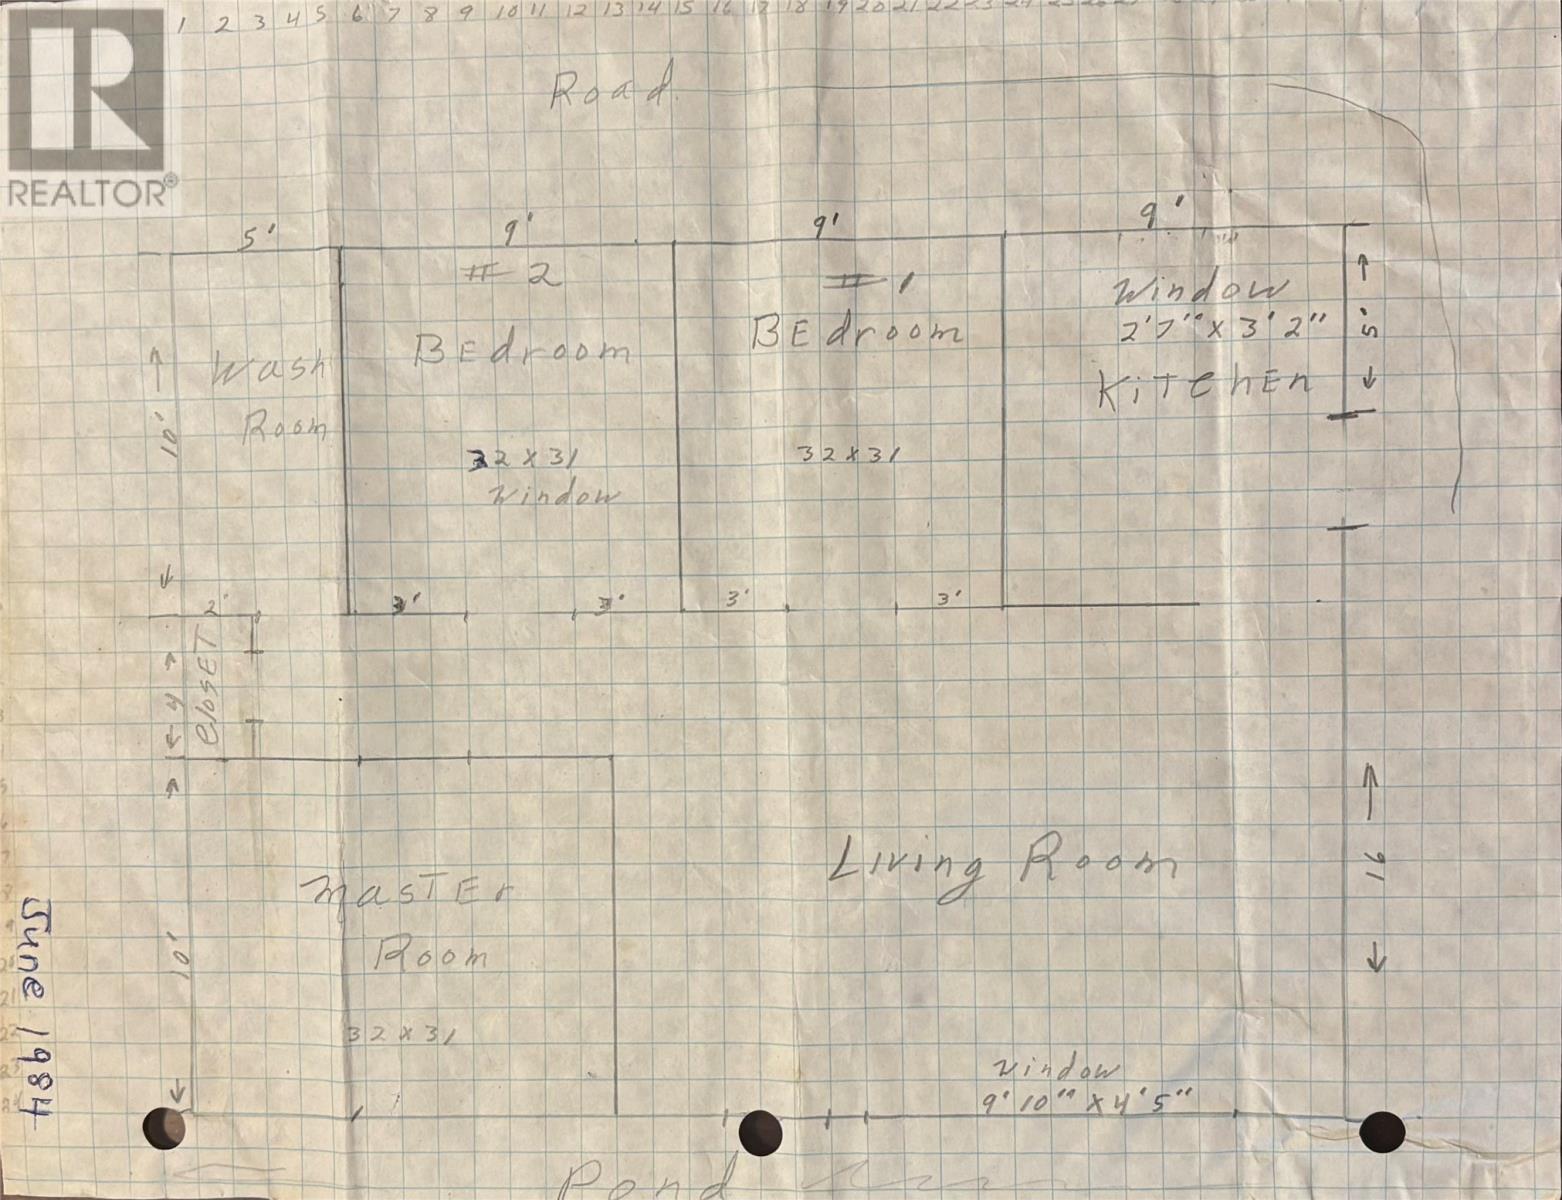 1 2 3 4 5 6 7 8 9 10 11 12 13 14 15 16 17 18 19 20 21 22 23 24 25 26 27
REALTOR®
Road
5' 9' 9' 9'
# 2
# 1
Window
2'7" x 3'2"
KiTchEn
5'
BEdroom
BEdroom
Wash
Room
10'
32 x 31
Window
32 x 31
2' 3' 3' 3' 3'
CloSET
4
MasTEr
Room
10'
32 x 31
Living Room
16
Window
9'10" x 4'5"
June 1984
Pond